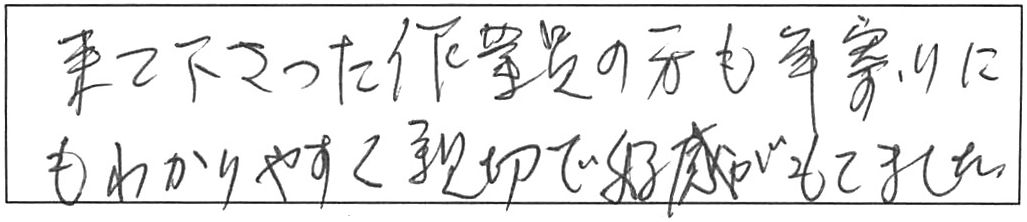 来て下さった作業員の方も年寄りに
もわかりやすく親切で好感がもてました。